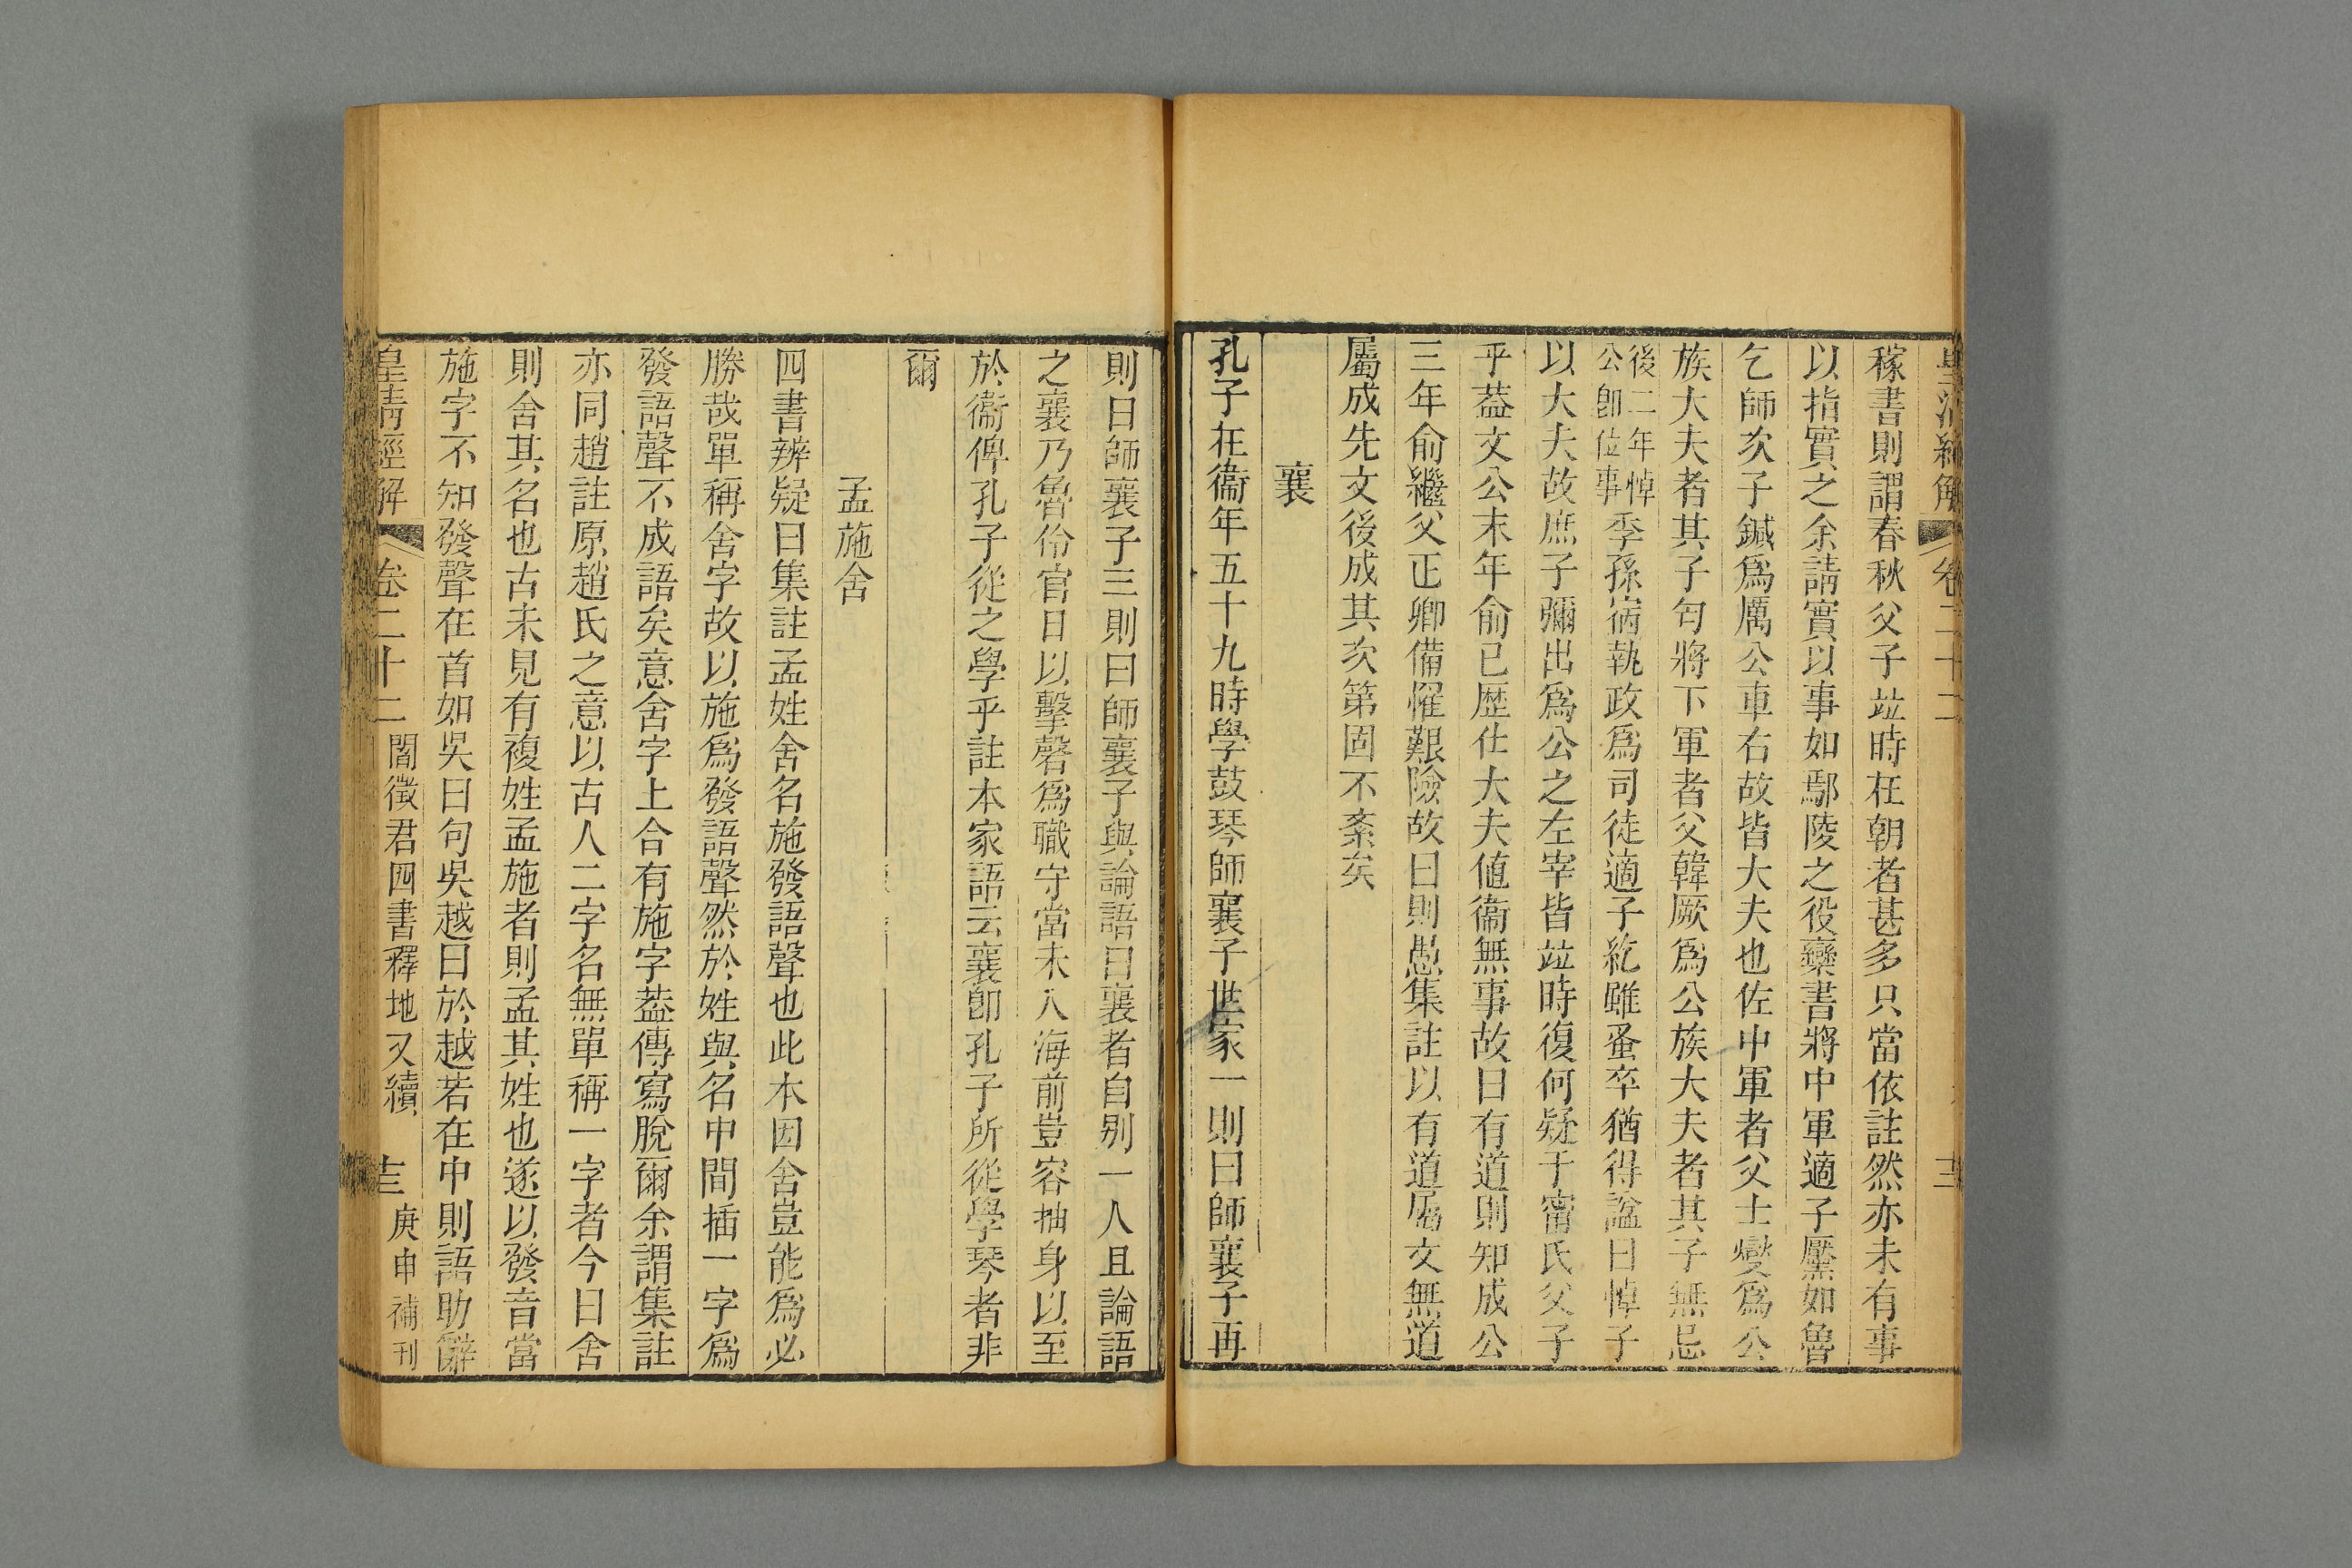 皇清經解 卷二十二 三
稼書則謂春秋父子竝時在朝者甚多只當依註然亦未有事
以指實之余請實以事如鄢陵之役欒書將中軍適子黶如魯
乞師次子鍼爲厲公車右故皆大夫也佐中軍者父士燮爲公
族大夫者其子匄將下軍者父韓厥爲公族大夫者其子無忌
後二年悼公卽位事季孫病執政爲司徒適子紇雖蚤卒猶得諡曰悼子
以大夫故庶子彌出爲公之左宰皆竝時復何疑于甯氏父子
乎葢文公末年俞已歷仕大夫值衞無事故曰有道則知成公
三年俞繼父正卿備懼艱險故曰則愚集註以有道屬文無道
屬成先文後成其次第固不紊矣
襄
孔子在衞年五十九時學鼓琴師襄子世家一則曰師襄子再
則曰師襄子三則曰師襄子與論語曰襄者自别一人且論語
之襄乃魯伶官日以擊磬爲職守當未入海前豈容抽身以至
於衞俾孔子從之學乎註本家語云襄卽孔子所從學琴者非
爾
孟施舍
四書辨疑曰集註孟姓舍名施發語聲也此本因舍豈能爲必
勝哉單稱舍字故以施爲發語聲然於姓與名中間插一字爲
發語聲不成語矣意舍字上合有施字葢傳寫脫爾余謂集註
亦同趙註原趙氏之意以古人二字名無單稱一字者今曰舍
則舍其名也古未見有複姓孟施者則孟其姓也遂以發音當
施字不知發聲在首如吳曰句吳越曰於越若在中則語助辭
皇清經解 卷二十二 閻徵君四書釋地又續 三 庚申補刊